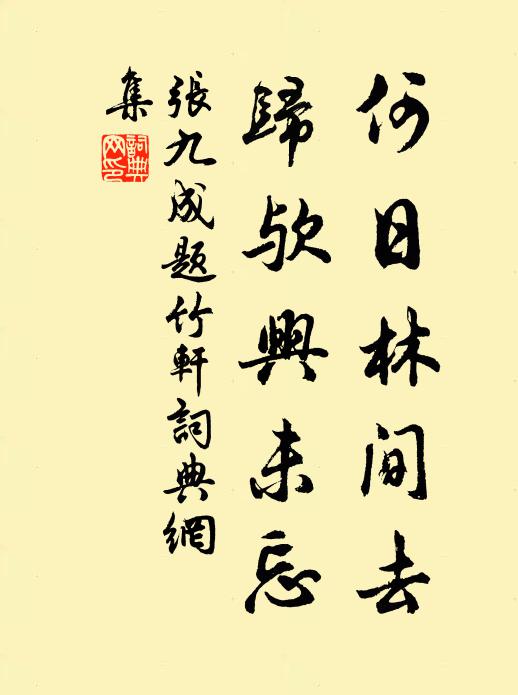 何日林間去
歸欤興未忘
張九成題竹軒詞典網
集
詞典网印